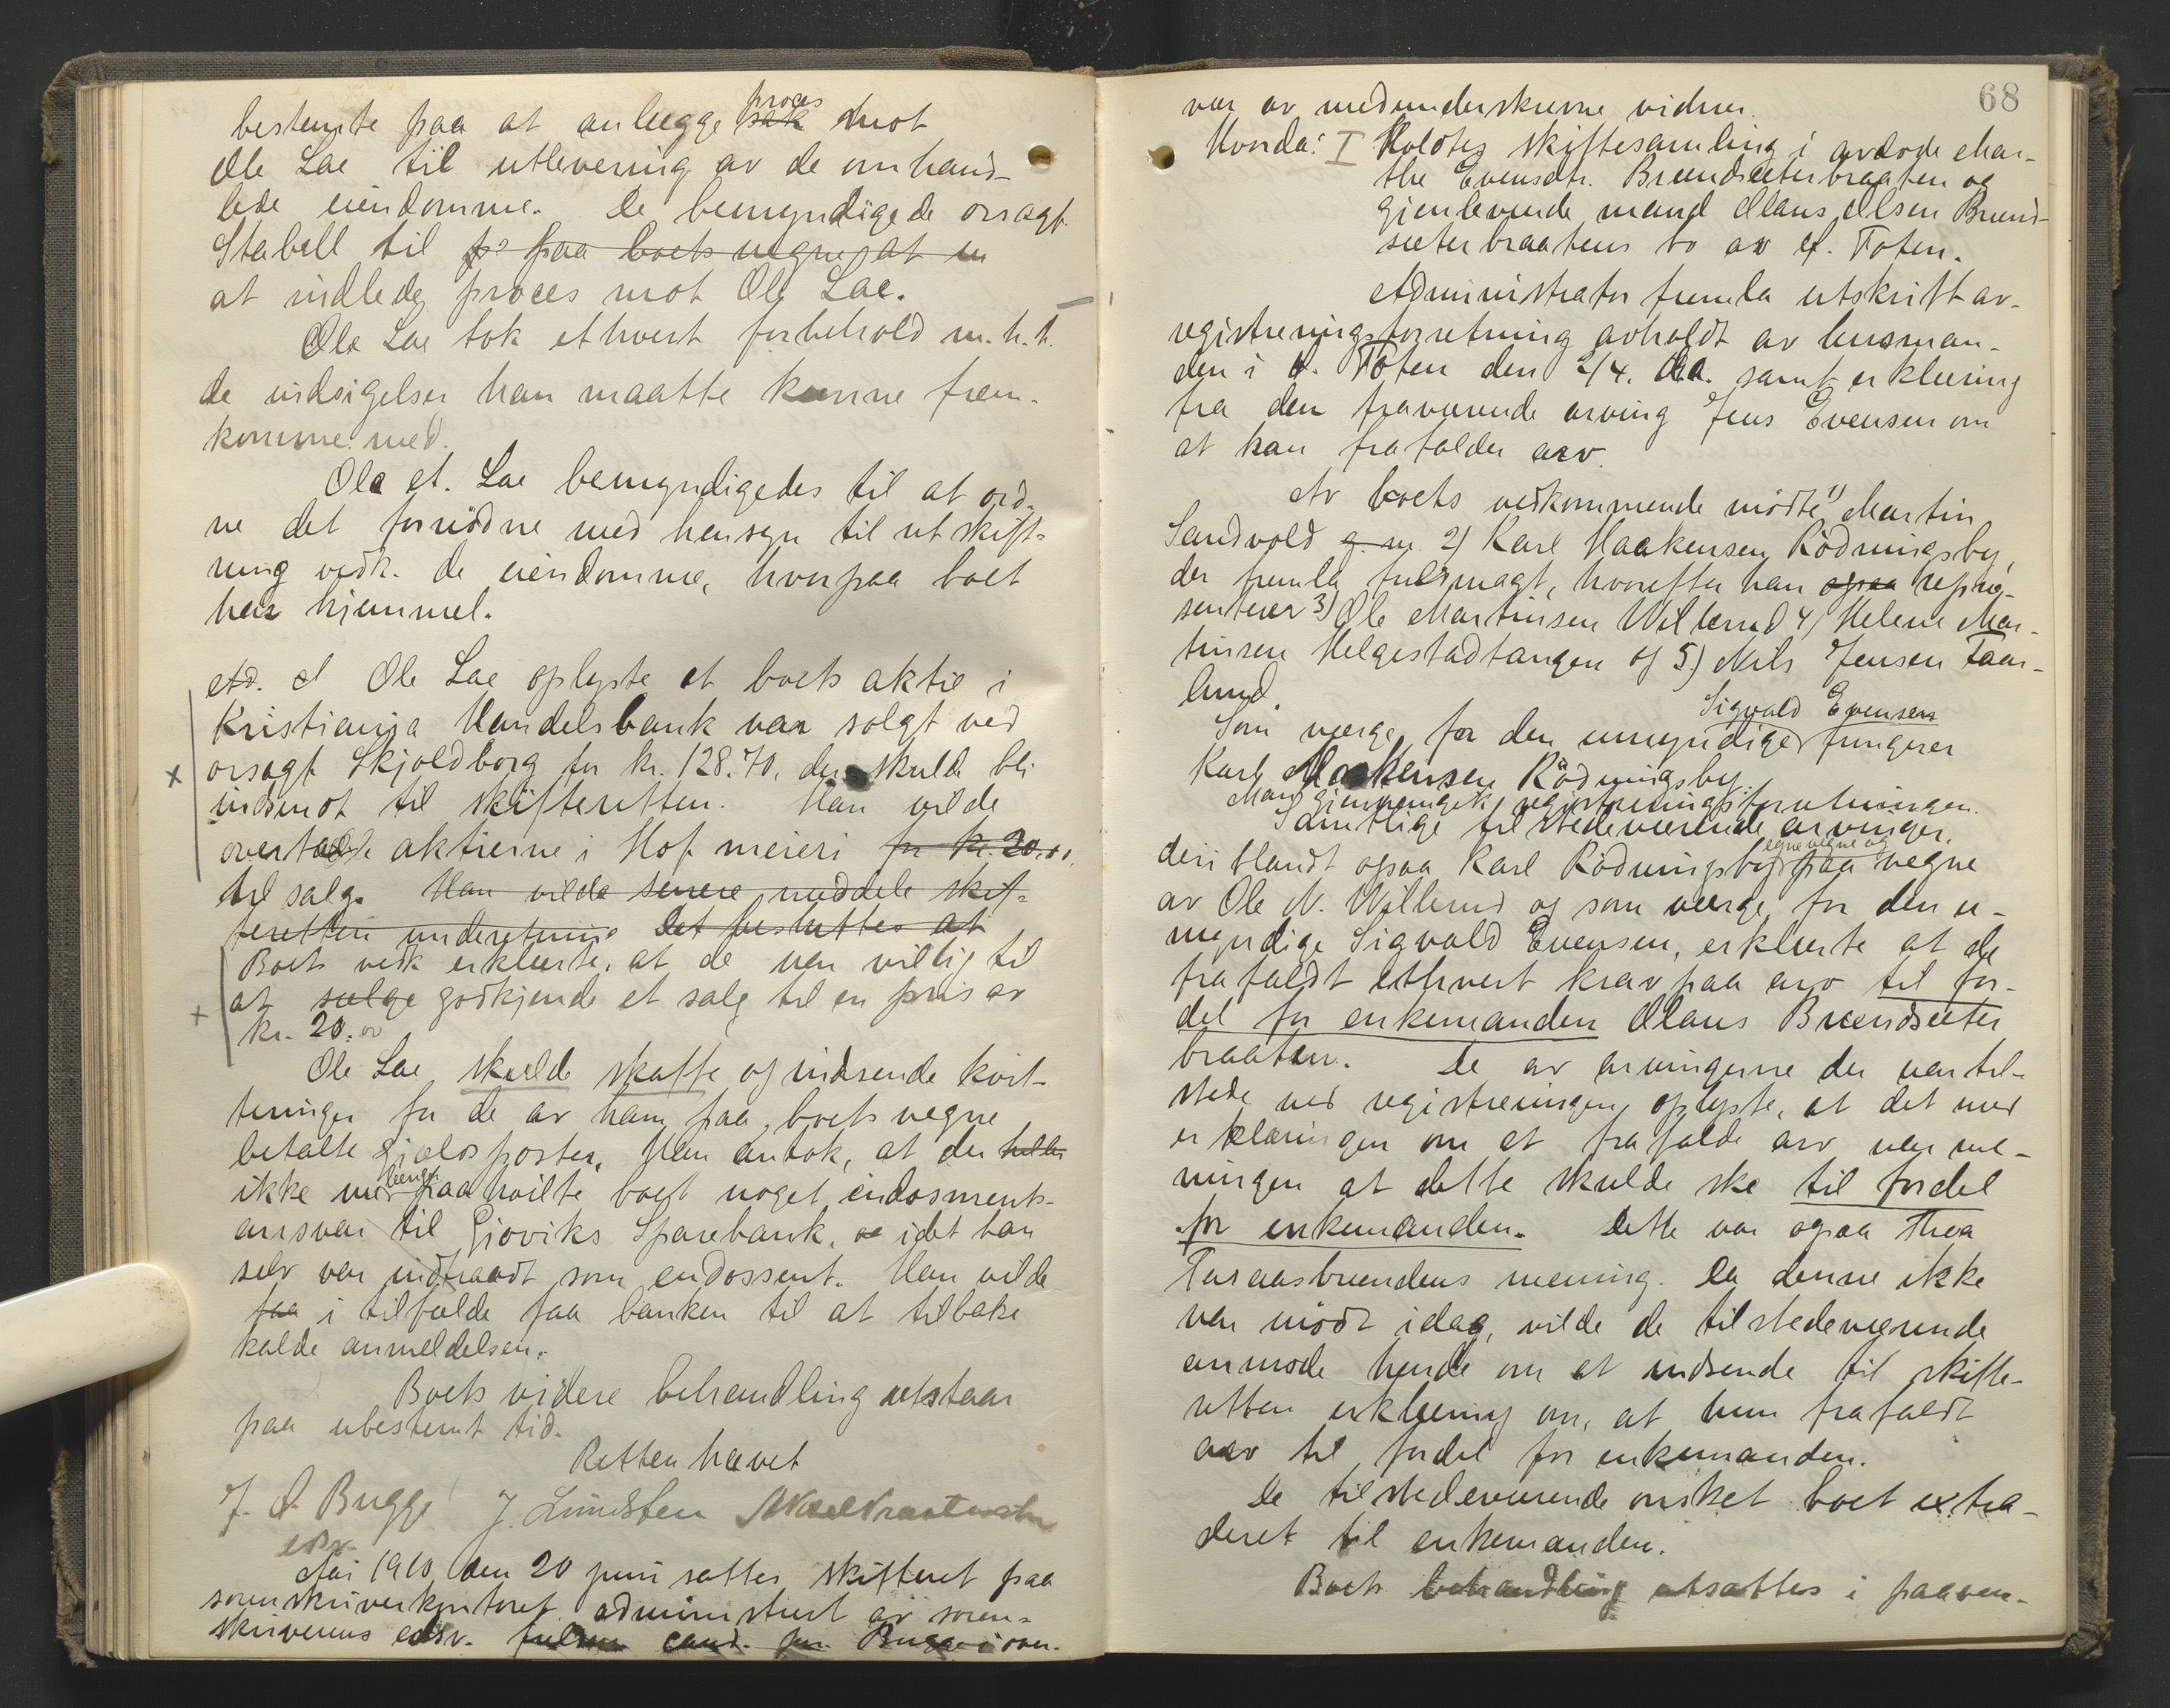 bestemte paa at anlægge sak proces mot
Ole Lae til utlevering av de omhand-
lede eiendomme. De bemyndigede orsagf.
Stabell til paa boets vegne at
at indlede proces mot Ole Lae.
Ole Lae tok ethvert forbehold m.h.t.
de indsigelser han maatte kunne frem-
komme med.
Ole A. Lae bemyndigedes til at ord-
ne det fornødne med hensyn til utskift-
ning vedk. de eiendomme, hvorpaa boet
har hjemmel.
Ole Lae oplyste at boets aktie i
Kristiania Handelsbank var solgt ved
orsagf. Skjoldborg for kr. 128.70, der skulde bli
indsendt til skifteretten. Han vilde
overta aktierne i Hof meieri for kr. 20.00.
til salg. Han vilde senere meddele skif-
teretten underetning Det besluttes at
Boets vedk erklærte, at de var villig til
at sælge godkjende et salg til en pris av
kr. 20.00
Ole Lae skulde skaffe og indsende kvit-
teringer for de av ham paa boets vegne
betalte gjældsposter. Han antok, at der heller
ikke længer paahvilte boet noget endosments-
ansvar til Gjøviks Sparebank, idet han
selv var indtraadt som endossent. Han vilde
faa i tilfælde faa banken til at tilbake
kalde anmeldelsen.
Boets videre behandling utstaar
paa ubestemt tid.
Retten hævet
J. A. Bugge J. Lundsten
edsv.
Aar 1910 den 20 juni sattes skifteret paa
sorenskriverkontoret administrert av soren-
skriverens edsv. cand. jur. Bugge i over-
68
vær av medunderskrevne vidner.
Hvorda: I Holdtes skiftesamling i avdøde Mar-
the Evensdtr. Brændsæterbraaten og
gjenlevende mand Olaus Olsen Brænd-
sæterbraatens bo av Ø. Toten.
Administrator fremla utskrift av
registreringsforretning avholdt av lensman-
den i Ø. Toten den 2/4. d.a. samt erklæring
fra den fraværende arving Jens Evensen om
at han frafalder arv.
Av boets vedkommende mødte 1) Martin
Sandvold 2) Karl Haakensen Rødningsby,
der fremla fuldmagt, hvorefter han ogsaa repræ-
senterer 3) Ole Martinsen Willerud 4) Helene Mar-
tinsen Helgestadtangen og 5) Nils Jensen Faar-
lund.
Som værge for den umyndige Sigvald Evensen fungerer
Karl Haakensen Rødningsby.
Man gjennemgik registreringsforretningen.
Samtlige tilstedeværende arvinger,
deriblandt ogsaa Karl Rødningsby egne vegne og paa vegne
av Ole M. Willerud og som værge for den u-
myndige Sigvald Evensen, erklærte at de
frafaldt ethvert krav paa arv til for-
del for enkemanden Olaus Brændsæter
braaten. De av arvingerne der var til-
stede ved registreringen oplyste, at det med
erklæringen om at frafalde arv var me-
ningen at dette skulde ske til fordel
for enkemanden. Dette var ogsaa Thea
Turaasbrændens mening. Da denne ikke
var mødt idag, vilde de tilstedeværende
anmode hende om at indsende til skifte-
retten erklæring om, at hun frafaldt
arv til fordel for enkemanden.
De tilstedeværende ønsket boet extra-
deret til enkemanden.
Boets behandling utsattes i paaven-